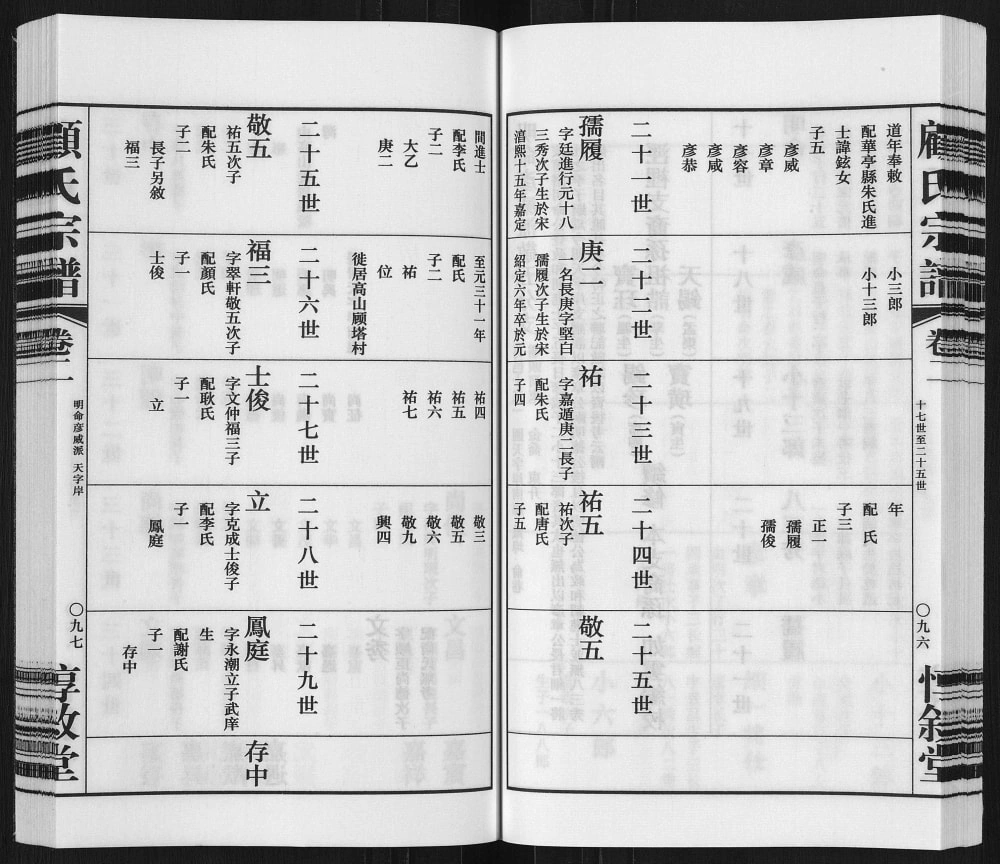 顧氏宗譜
卷二
十七世至二十五世
〇九六
惇敘堂
道年奉敕
配華亭縣朱氏進
士諱鉉女
子五
彥威
彥章
彥容
彥咸
彥恭
小三郎
小十三郎
年
配 氏
子三
正一
孺履
孺俊
二十一世
二十二世
二十三世
二十四世
二十五世
孺履
字廷進行元十八
三秀次子生於宋
淳熙十五年嘉定
庚二
一名長庚字堅白
孺履次子生於宋
紹定六年卒於元
祐
字嘉遁庚二長子
配朱氏
子四
祐五
祐次子
配唐氏
子五
敬五
間進士
配李氏
子二
大乙
庚二
至元三十一年
配 氏
子二
祐
位
徙居高山顾塔村
祐四
祐五
祐六
祐七
敬三
敬五
敬六
敬九
興四
二十五世
二十六世
二十七世
二十八世
二十九世
敬五
祐五次子
配朱氏
子二
長子另敘
福三
福三
字翠軒敬五次子
配顏氏
子一
士俊
士俊
字文仲福三子
配耿氏
子一
立
立
字克成士俊子
配李氏
子一
鳳庭
鳳庭
字永潮立子武庠
生
配謝氏
子一
存中
存中
顧氏宗譜
卷二
明命彥威派 天字岸
〇九七
惇敘堂